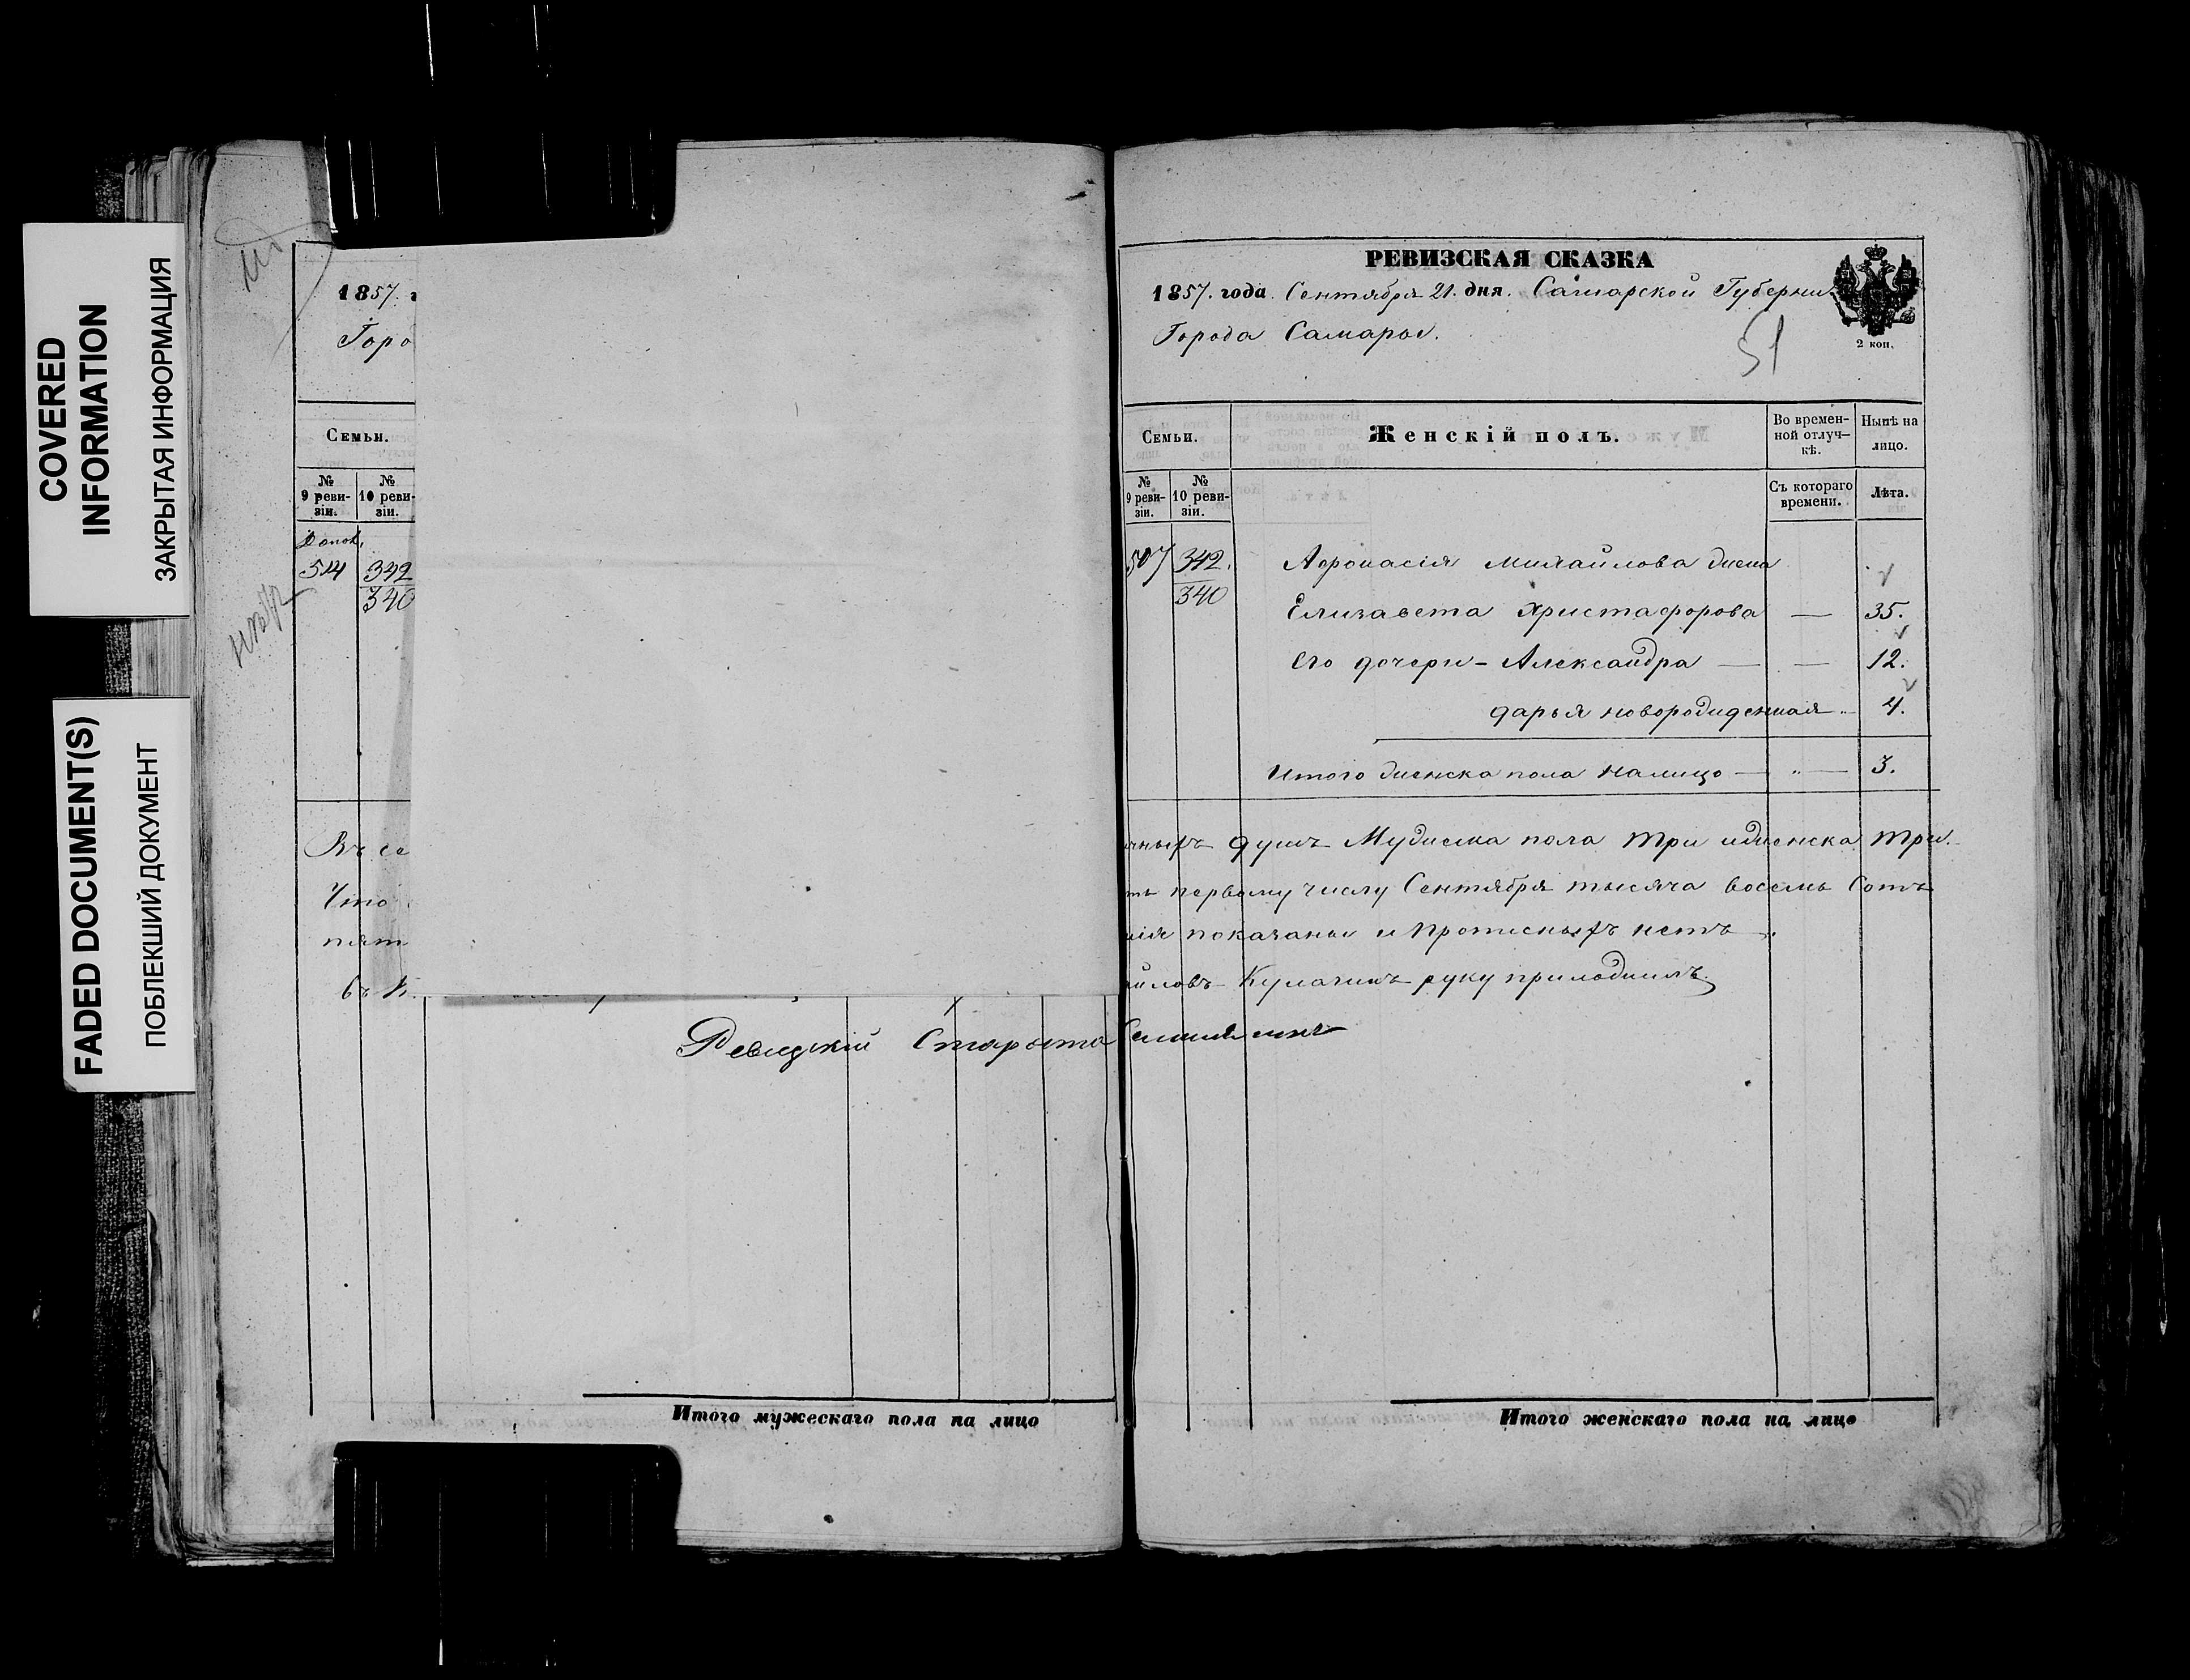 COVERED
INFORMATION
ЗАКРЫТАЯ ИНФОРМАЦИЯ
FADED DOCUMENT(S)
ПОБЛЕКШИЙ ДОКУМЕНТ
1857. г
Горо
Семьи.
№ 9 реви-зіи.
№ 10 реви-зіи.
514 342
340
Въ се
Что
пят
Ревизкій Староста
Итого мужескаго пола на лицо
РЕВИЗСКАЯ СКАЗКА
1857. года. Сентября 21. дня. Самарской Губерніи
Города Самары.
51
2 коп.
Семьи.
Женскій полъ.
Во времен-ной отлуч-кѣ.
Нынѣ на лицо.
№ 9 реви-зіи.
№ 10 реви-зіи.
Съ котораго времени.
Лѣта.
507 342. Афонасія Михайлова жена
340 Елизавета Христафорова — 35.
Его дочери - Александра — — 12.
дарья новорожденная — 4.
Итого женска пола налицо — — 3.
душъ Мужска пола три и женска три.
первому числу Сентября тысяча восемь сотъ
показаны и прописныхъ нетъ
йловъ Кулачикъ руку приложилъ
Итого женскаго пола на лице